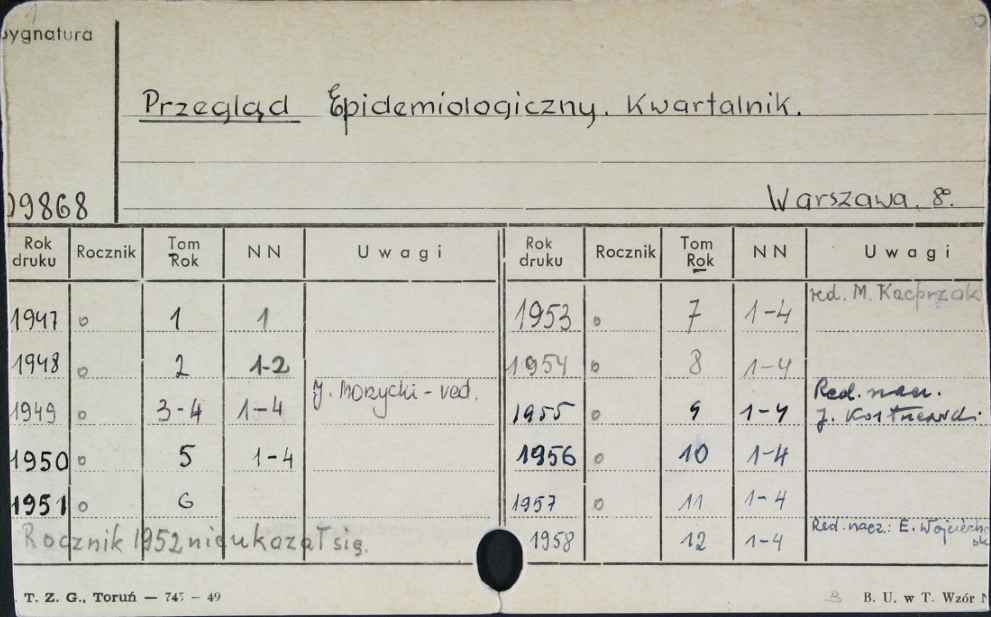 Sygnatura
Przegląd Epidemiologiczny. Kwartalnik.
09868
Warszawa. 8°.
Rok druku Rocznik Tom Rok NN Uwagi Rok druku Rocznik Tom Rok NN Uwagi
1947 o 1 1 1953 o 7 1-4 red. M. Kacprzak
1948 o 2 1-2 1954 o 8 1-4
1949 o 3-4 1-4 J. Morzycki - red. 1955 o 9 1-4 Red. nacz. J.
1950 o 5 1-4 1956 o 10 1-4
1951 o 6 1957 o 11 1-4
Rocznik 1952 nie ukazał się. 1958 12 1-4 Red. nacz.: E.
T. Z. G., Toruń — 747 — 49 B. U. w T. Wzór